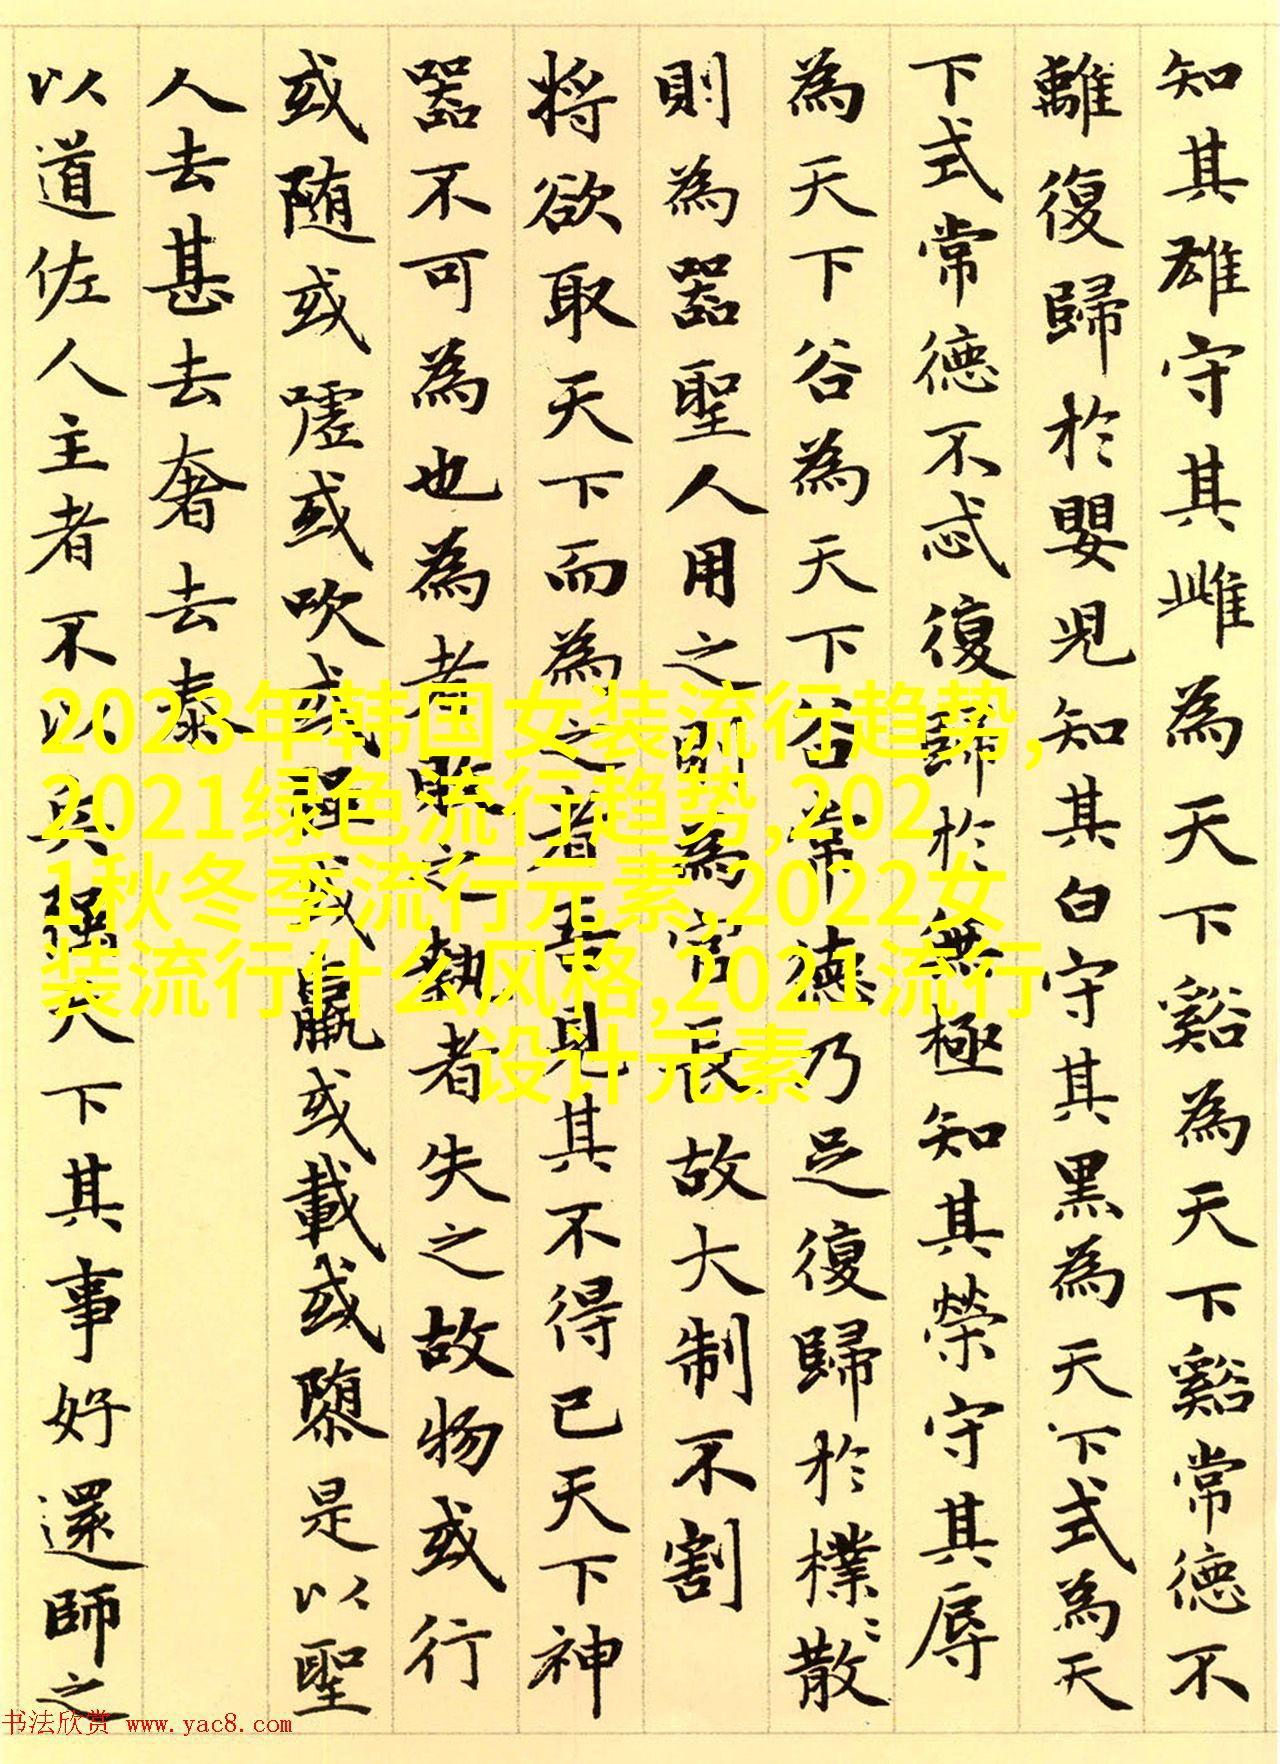 知其雄守其雌為天下谿為天下谿常德不
離復歸於嬰児知其白守其黑為天下式為天
下式常德不忒復歸於無極知其榮守其辱
為天下谷為天下谷常德乃足復歸於樸〻散
則為器聖人用之則為官長故大制不割
将欲取天下而為之者吾見其不得已天下神
器不可為也為者敗之執者失之故物或行
或随或噓或吹或强或羸或載或隳是以聖
人去甚去奢去泰
以道佐人主者不以兵强天下其事好還師之
2023年韩国女装流行趋势,
2021绿色流行趋势,202
1秋冬季流行元素,2022女
装流行什么风格,2021流行
设计元素
书法欣赏 www.yac8.com